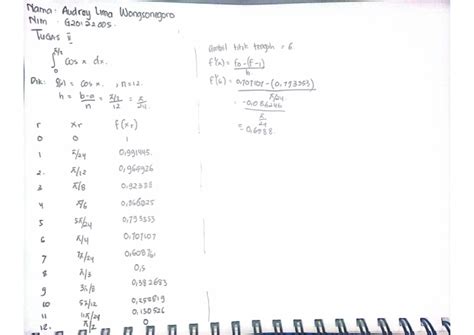 Nama: Audrey Lima Wongsonegoro
Nim : G20122005
TUGAS II
∫ cos x dx.
0
Dik: f(x) = cos x , n=12.
h = b-0/n = π/2/12 = π/24
r xr f(xr)
0 0 1
1 π/24 0,991445
2. π/12
3 π/8 0,92388
4 π/6
5 5π/24 0,793353
6 π/4 0,707107
7 7π/24 0,608761
8 π/3 0,5
9 3π/8 0,382683
10 5π/12 0,258819
11 11π/24 0,130526
12. π/2 0
Ambil titik tengah = 6
f'(x) = f0-(f-1)/h
f'(6) = 0,707107 - (0,793353)
π/24
-0,086246
π/24